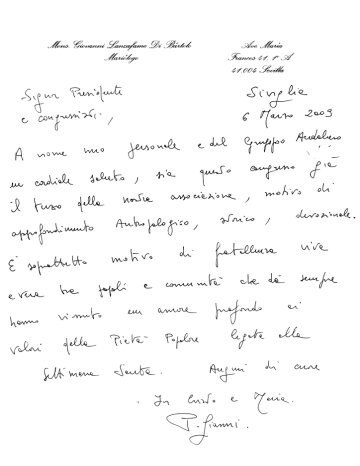 Mons. Giovanni Lanzafame Di Bàrtolo
Mariólogo
Ave María
Francos 41. 1º A
41.004 Sevilla
Siviglia
6 Marzo 2009
Signor Presidente
e congressisti,
A nome mio personale e del Gruppo Andaluso
un cordiale saluto, sia questo congresso già
il terzo della nostra associazione, motivo di
approfondimento Antropologico, storico, devozionale.
È soprattutto motivo di fratellanza viva
e vera tra popoli e comunità che da sempre
hanno vissuto un amore profondo ai
valori della Pietà Popolare legata alla
Settimana Santa. Auguri di cuore
In Cristo e Maria.
P. Gianni.